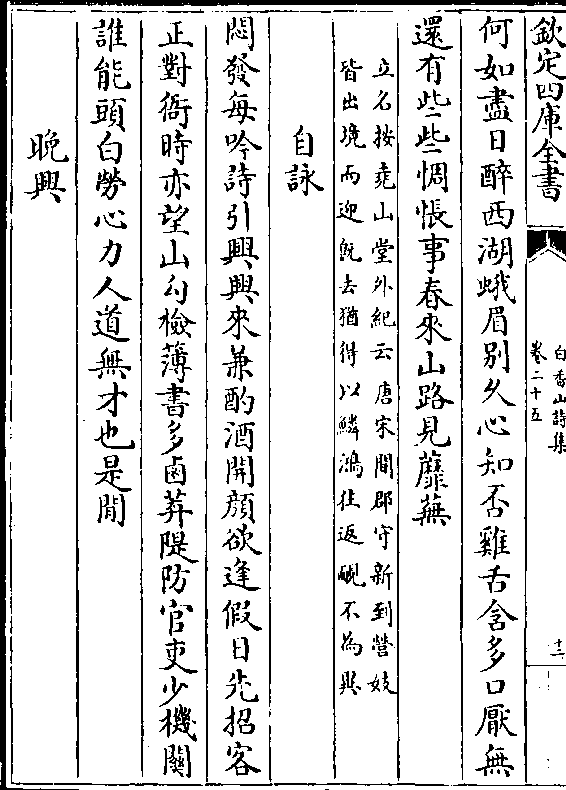 欽定四庫全書
白香山詩集
卷二十五
十二
何如盡日醉西湖蛾眉别久心知否雞舌含多口厭無
還有些些惆悵事春來山路見蘼蕪
立名按堯山堂外紀云唐宋間郡守新到營妓
皆出境而迎既去猶得以鱗鴻往返靦不為異
自詠
悶發每吟詩引興興來兼酌酒開顔欲逢假日先招客
正對衙時亦望山勾檢薄書多鹵莽隄防官吏少機關
誰能頭白勞心力人道無才也是閒
晚興